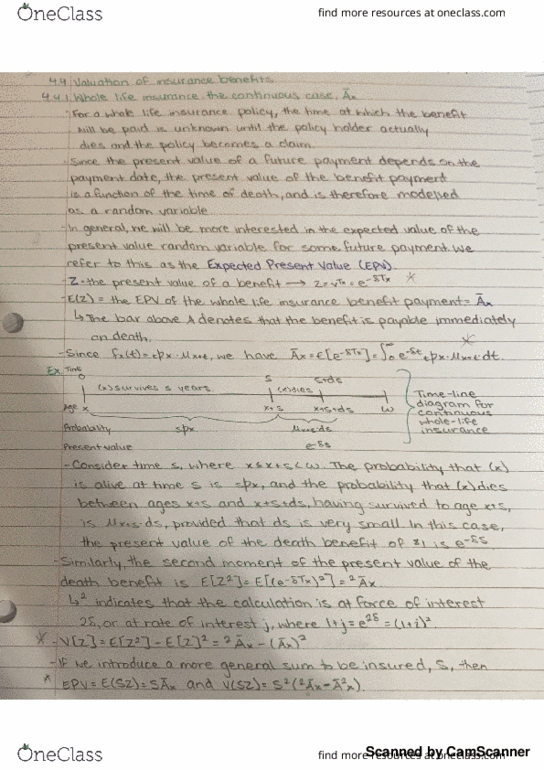 OneClass
find more resources at oneclass.com
4.4 Valuation of insurance benefits
4.4.1 Whole life insurance the continuous case, Āx
- For a whole life insurance policy, the time at which the benefit
will be paid is unknown until the policy holder actually
dies and the policy becomes a claim.
- Since the present value of a future payment depends on the
payment date, the present value of the benefit payment
is a function of the time of death, and is therefore modelled
as a random variable.
- In general, we will be more interested in the expected value of the
present value random variable for some future payment. We
refer to this as the Expected Present Value (EPV).
- Z - the present value of a benefit → Z = v^Tx = e^-δTx *
- E(Z) = the EPV of the whole life insurance benefit payment = Āx
↳ The bar above A denotes that the benefit is payable immediately
on death. *
- Since fx(t) = tpx · μx+t, we have Āx = E[e^-δTx] = ∫0^∞ e^-δt tpx · μx+t dt.
Ex Time 0 s s+ds
(x) survives s years. (x) dies
Age x x+s x+s+ds ω
Probability spx μx+s ds
Present value e^-δs
Time-line
diagram for
continuous
whole-life
insurance
- Consider time s, where x ≤ x+s < ω. The probability that (x)
is alive at time s is spx, and the probability that (x) dies
between ages x+s and x+s+ds, having survived to age x+s,
is μx+s ds, provided that ds is very small. In this case,
the present value of the death benefit of $1 is e^-δs
- Similarly, the second moment of the present value of the
death benefit is E[Z²] = E[(e^-δTx)²] = ²Āx
↳ ² indicates that the calculation is at force of interest
2δ, or at rate of interest j, where 1+j = e^2δ = (1+i)².
* - V[Z] = E[Z²] - E[Z]² = ²Āx - (Āx)²
- If we introduce a more general sum to be insured, S, then
* EPV = E(SZ) = SĀx and V(SZ) = S²(²Āx - Ā²x).
OneClass
find more resources at oneclass.com
Scanned by CamScanner